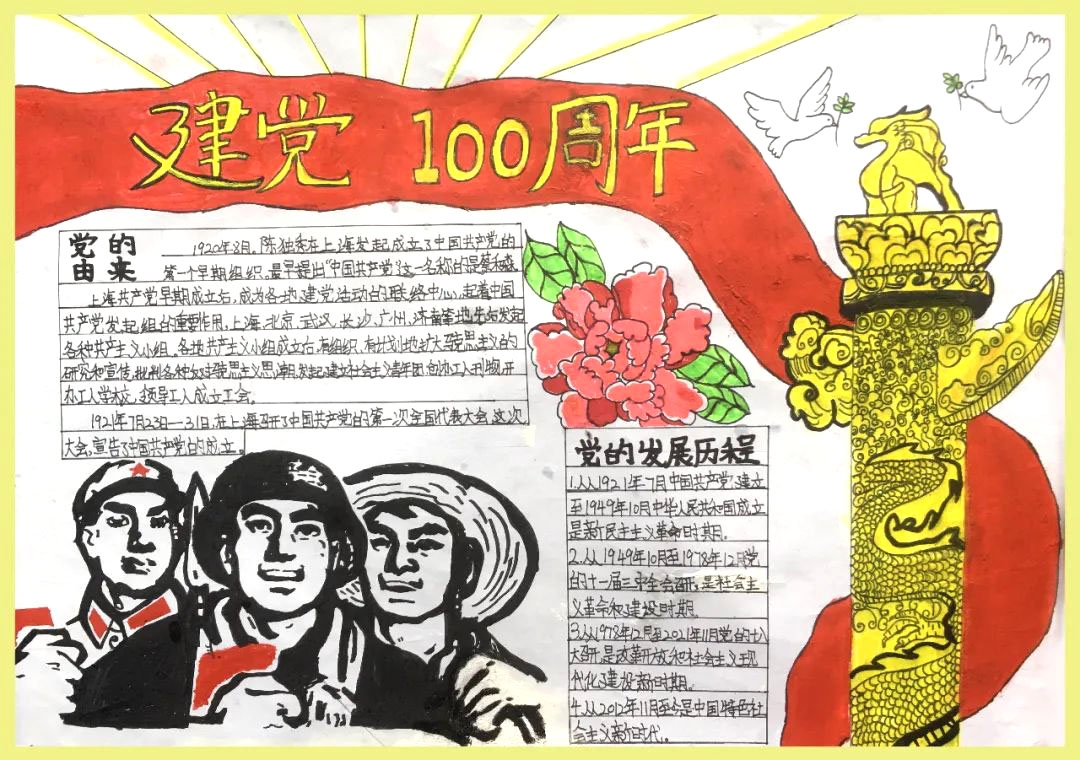 建党 100周年
党的由来
1920年8月,陈独秀在上海发起成立了中国共产党的
第一个早期组织。最早提出“中国共产党”这一名称的是蔡和森
上海共产党早期成立后,成为各地建党活动的联络中心,起着中国
共产党发起组的重要作用,上海、北京、武汉、长沙、广州、济南等地先后发起
各种共产主义小组。各地共产主义小组成立后,有组织、有计划地扩大马克思主义的
研究和宣传,批判各种反马克思主义思潮,发起建立社会主义青年团,创办工人刊物,开
办工人学校,领导工人成立工会。
1921年7月23日—31日,在上海召开了中国共产党的第一次全国代表大会,这次
大会,宣告了中国共产党的成立。
党的发展历程
1.从从1921年7月中国共产党建立
至1949年10月中华人民共和国成立
是新民主主义革命时期。
2.从1949年10月至1978年12月党
的十一届三中全会召开,是社会主
义革命和建设时期
3.从1978年12月至2021年11月党的十八
大召开,是改革开放和社会主义现
代化建设新时期。
4.从2012年11月至今是中国特色社
会主义新时代。